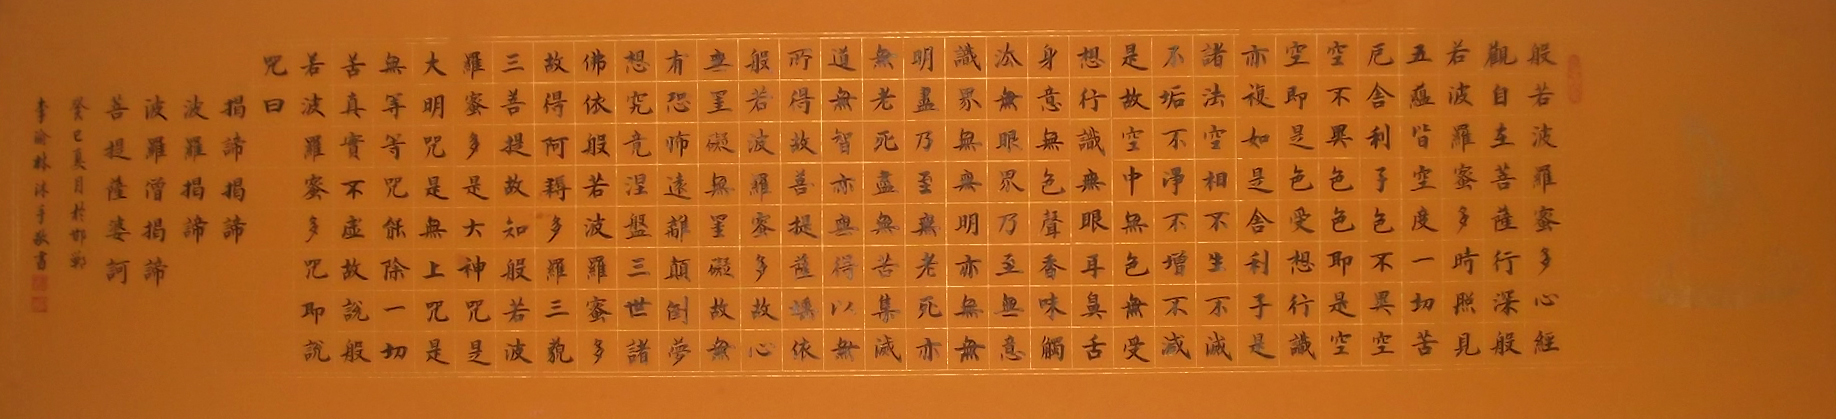 般若波羅蜜多心經
觀自在菩薩行深般
若波羅蜜多時照見
五蘊皆空度一切苦
厄舍利子色不異空
空不異色色即是空
空即是色受想行識
亦複如是舍利子是
諸法空相不生不滅
不垢不淨不增不減
是故空中無色無受
想行識無眼耳鼻舌
身意無色聲香味觸
法無眼界乃至無意
識界無無明亦無無
明盡乃至無老死亦
無老死盡無苦集滅
道無智亦無得以無
所得故菩提薩埵依
般若波羅蜜多故心
無罣礙無罣礙故無
有恐怖遠離顛倒夢
想究竟涅盤三世諸
佛依般若波羅蜜多
故得阿耨多羅三藐
三菩提故知般若波
羅蜜多是大神咒是
大明咒是無上咒是
無等等咒能除一切
苦真實不虛故說般
若波羅蜜多咒即說
咒曰
揭諦揭諦
波羅揭諦
波羅僧揭諦
菩提薩婆訶
癸巳夏月於邯鄲
李林沐手敬書